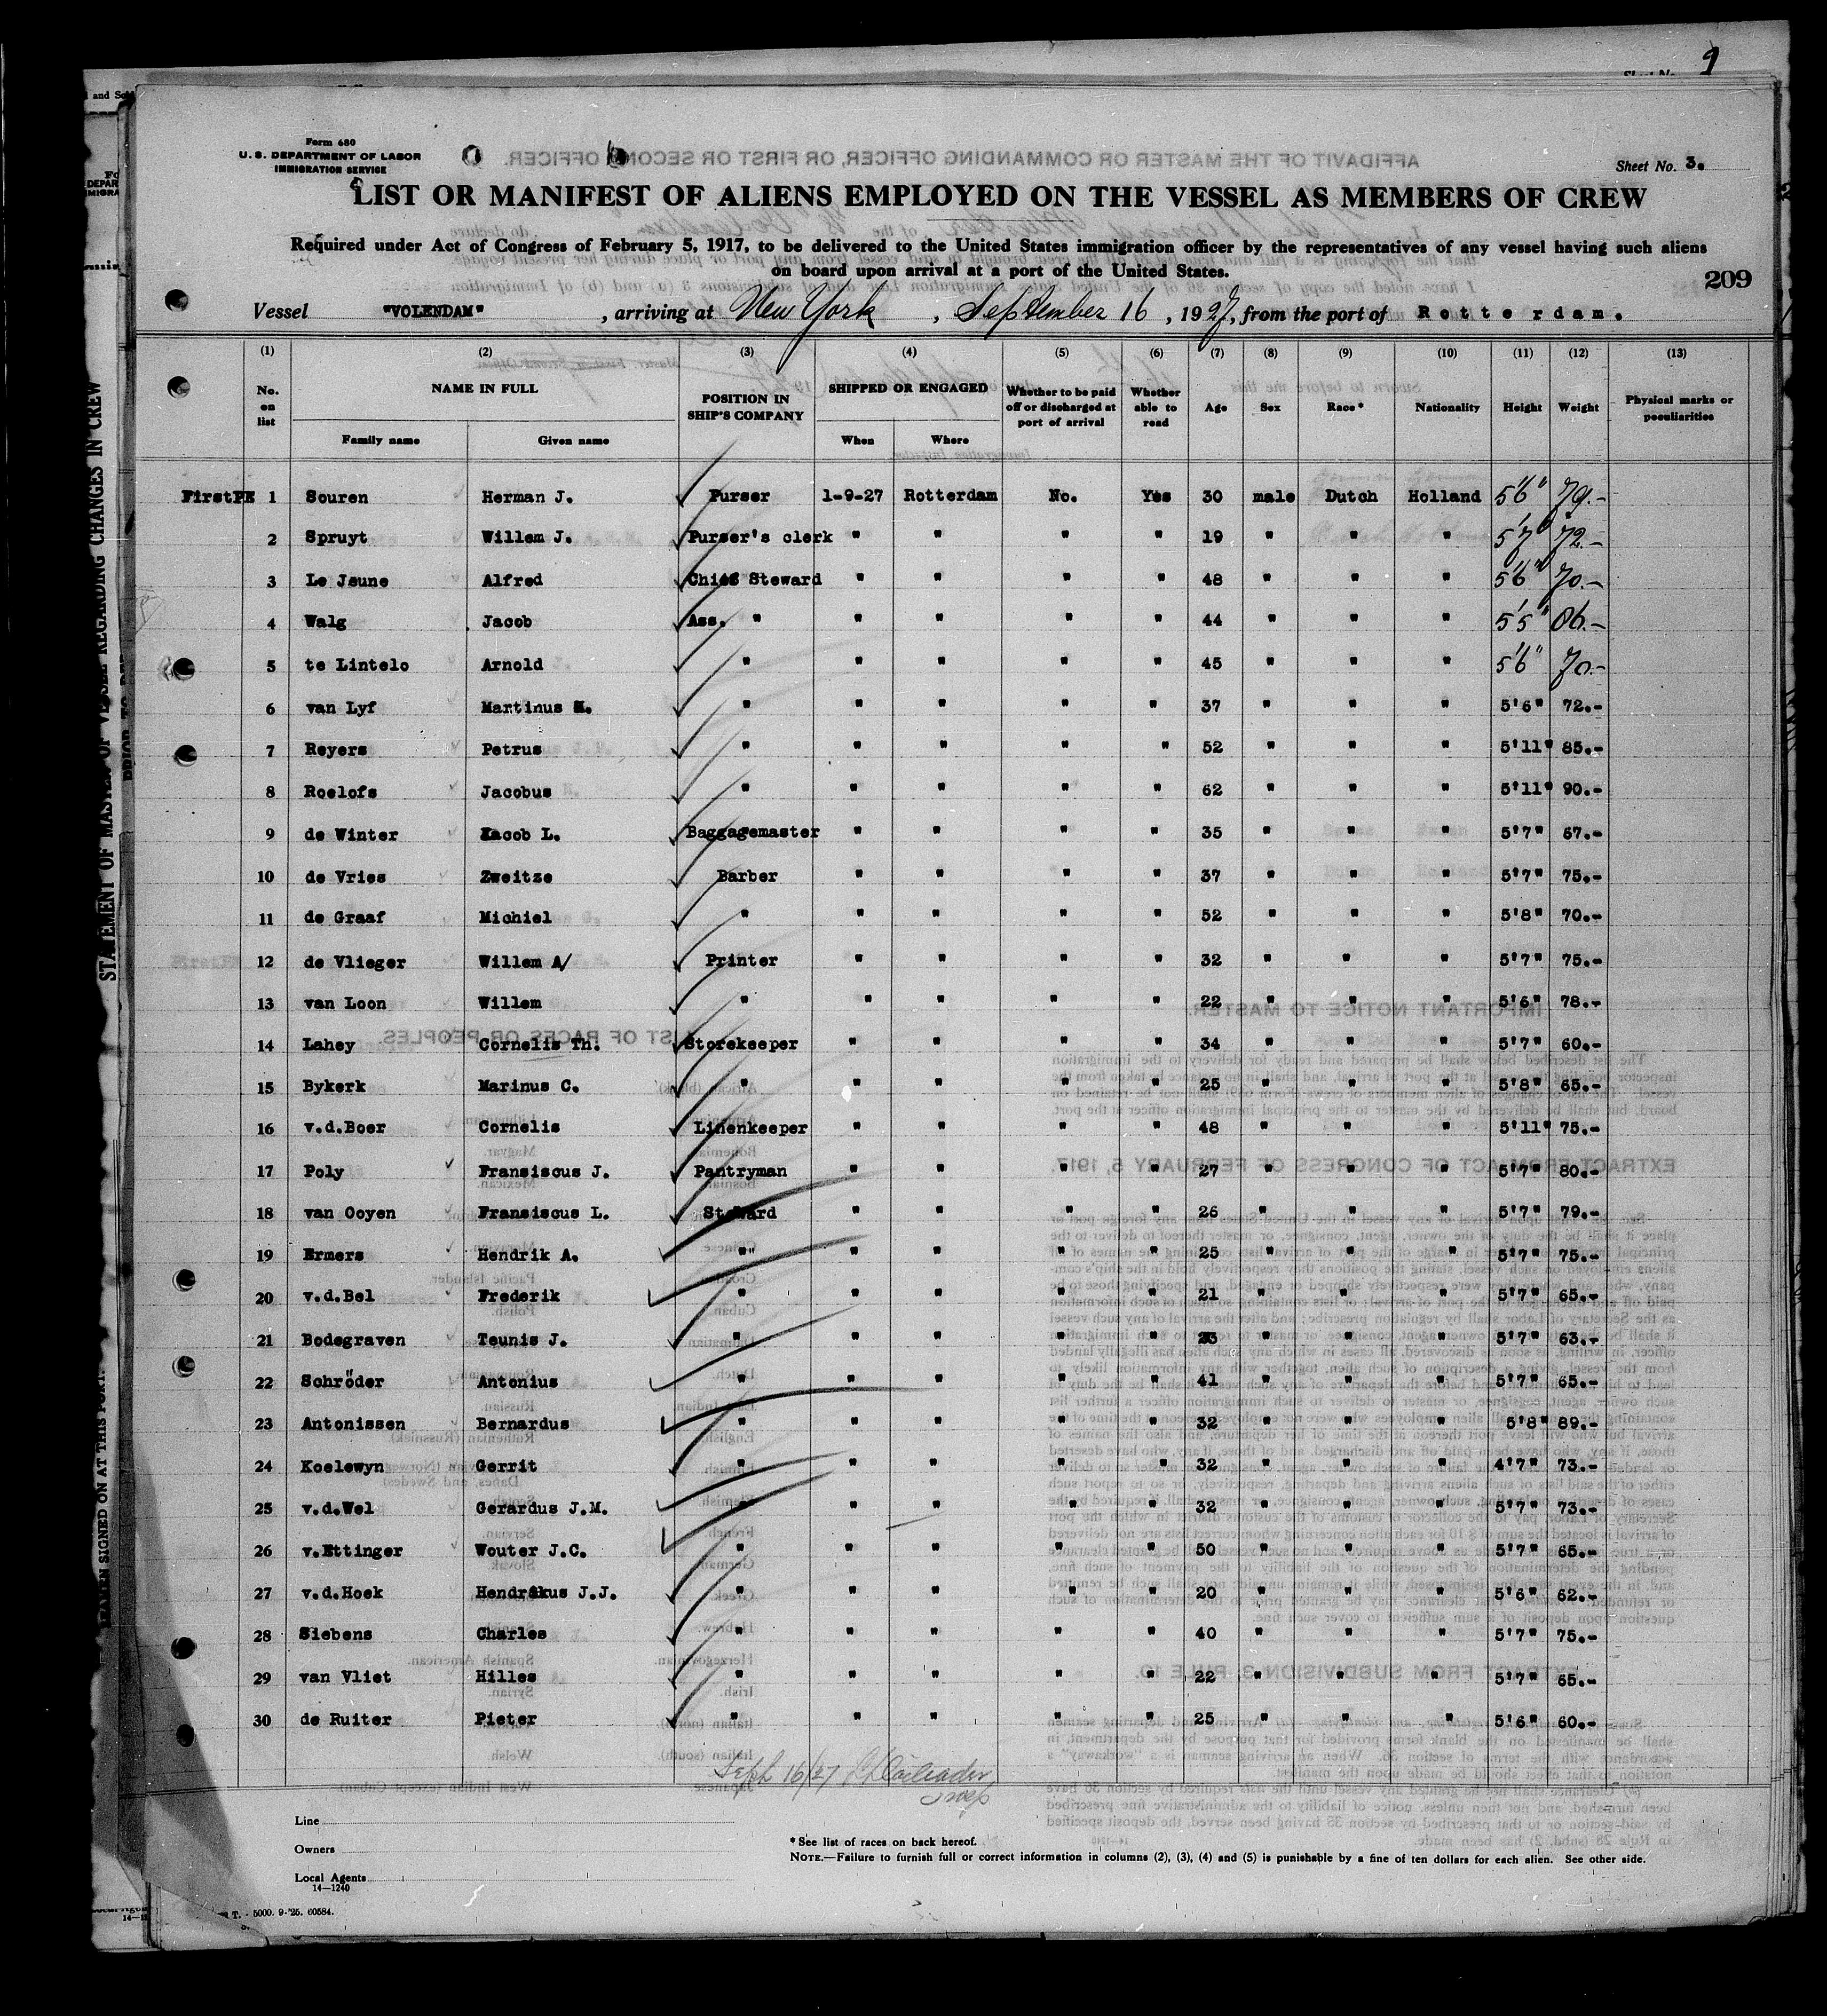 9
Form 680
U. S. DEPARTMENT OF LABOR
IMMIGRATION SERVICE
Sheet No. 3.
LIST OR MANIFEST OF ALIENS EMPLOYED ON THE VESSEL AS MEMBERS OF CREW
Required under Act of Congress of February 5, 1917, to be delivered to the United States immigration officer by the representatives of any vessel having such aliens
on board upon arrival at a port of the United States.
209
Vessel "VOLENDAM", arriving at New York, September 16, 1927, from the port of Rotterdam.
(1) (2) (3) (4) (5) (6) (7) (8) (9) (10) (11) (12) (13)
No. on list NAME IN FULL POSITION IN SHIP'S COMPANY SHIPPED OR ENGAGED Whether to be paid off or discharged at port of arrival Whether able to read Age Sex Race* Nationality Height Weight Physical marks or peculiarities
Family name Given name When Where
FirstPE 1 Souren Herman J. Purser 1-9-27 Rotterdam No. Yes 30 male Dutch Holland 5'6" 79.-
2 Spruyt Willem J. Purser's clerk " " " " 19 " " " 5'7" 72.-
3 Le Jeune Alfred Chief Steward " " " " 48 " " " 5'6" 70.-
4 Walg Jacob Ass. " " " " " 44 " " " 5'5" 86.-
5 te Lintelo Arnold " " " " " 45 " " " 5'6" 70.-
6 van Lyf Martinus H. " " " " " 37 " " " 5'6" 72.-
7 Reyers Petrus " " " " " 52 " " " 5'11" 85.-
8 Roelofs Jacobus " " " " " 62 " " " 5'11" 90.-
9 de Winter Jacob L. Baggagemaster " " " " 35 " " " 5'7" 67.-
10 de Vries Zweitze Barber " " " " 37 " " " 5'7" 75.-
11 de Graaf Michiel " " " " " 52 " " " 5'8" 70.-
12 de Vlieger Willem A/ Printer " " " " 32 " " " 5'7" 75.-
13 van Loon Willem " " " " " 22 " " " 5'6" 78.-
14 Lahey Cornelis Th. Storekeeper " " " " 34 " " " 5'7" 60.-
15 Bykerk Marinus C. " " " " " 25 " " " 5'8" 65.-
16 v.d.Boer Cornelis Linenkeeper " " " " 48 " " " 5'11" 75.-
17 Poly Fransiscus J. Pantryman " " " " 27 " " " 5'7" 80.-
18 van Ooyen Fransiscus L. Steward " " " " 26 " " " 5'7" 79.-
19 Ermers Hendrik A. " " " " " 25 " " " 5'7" 75.-
20 v.d.Bel Frederik " " " " " 21 " " " 5'7" 65.-
21 Bodegraven Teunis J. " " " " " 23 " " " 5'7" 63.-
22 Schröder Antonius " " " " " 41 " " " 5'7" 65.-
23 Antonissen Bernardus " " " " " 32 " " " 5'8" 89.-
24 Koelewyn Gerrit " " " " " 32 " " " 4'7" 73.-
25 v.d.Wel Gerardus J.M. " " " " " 32 " " " 5'7" 73.-
26 v.Ettinger Wouter J.C. " " " " " 50 " " " 5'7" 65.-
27 v.d.Hoek Hendrikus J.J. " " " " " 20 " " " 5'6" 62.-
28 Siebens Charles " " " " " 40 " " " 5'7" 75.-
29 van Vliet Hilles " " " " " 22 " " " 5'7" 65.-
30 de Ruiter Pieter " " " " " 25 " " " 5'6" 60.-
Sept 16/27
Line
Owners
Local Agents
14—1240
* See list of races on back hereof.
NOTE.—Failure to furnish full or correct information in columns (2), (3), (4) and (5) is punishable by a fine of ten dollars for each alien. See other side.
T. - 5000. 9-'25. 60584.
STATEMENT OF MASTER OF VESSEL REGARDING CHANGES IN CREW